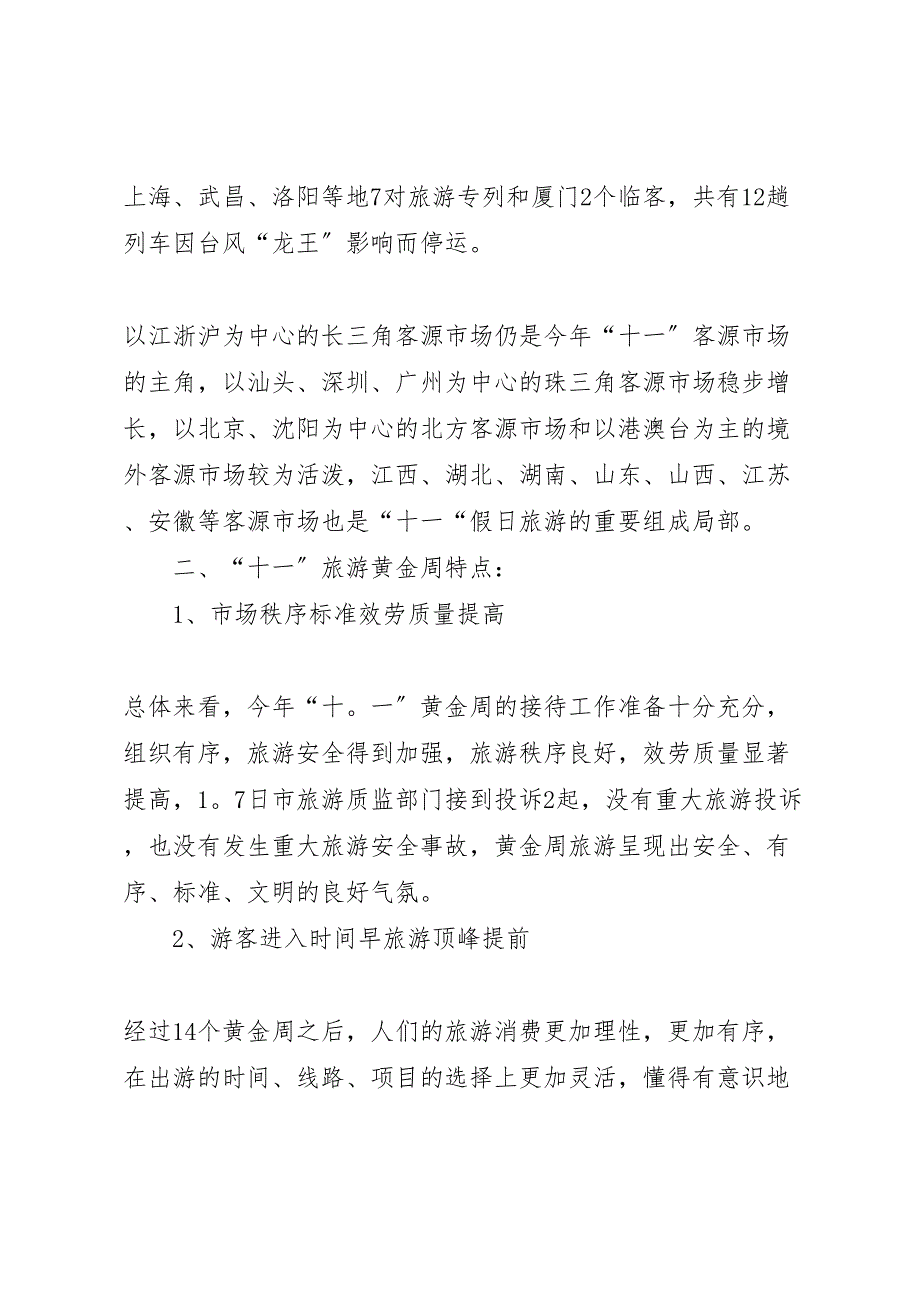 上海、武昌、洛阳等地7对旅游专列和厦门2个临客，共有12趟
列车因台风“龙王〞影响而停运。
以江浙沪为中心的长三角客源市场仍是今年“十一〞客源市场
的主角，以汕头、深圳、广州为中心的珠三角客源市场稳步增
长，以北京、沈阳为中心的北方客源市场和以港澳台为主的境
外客源市场较为活泼，江西、湖北、湖南、山东、山西、江苏
、安徽等客源市场也是“十一“假日旅游的重要组成局部。
二、“十一〞旅游黄金周特点：
1、市场秩序标准效劳质量提高
总体来看，今年“十。一〞黄金周的接待工作准备十分充分，
组织有序，旅游安全得到加强，旅游秩序良好，效劳质量显著
提高，1。7日市旅游质监部门接到投诉2起，没有重大旅游投诉
，也没有发生重大旅游安全事故，黄金周旅游呈现出安全、有
序、标准、文明的良好气氛。
2、游客进入时间早旅游顶峰提前
经过14个黄金周之后，人们的旅游消费更加理性，更加有序，
在出游的时间、线路、项目的选择上更加灵活，懂得有意识地